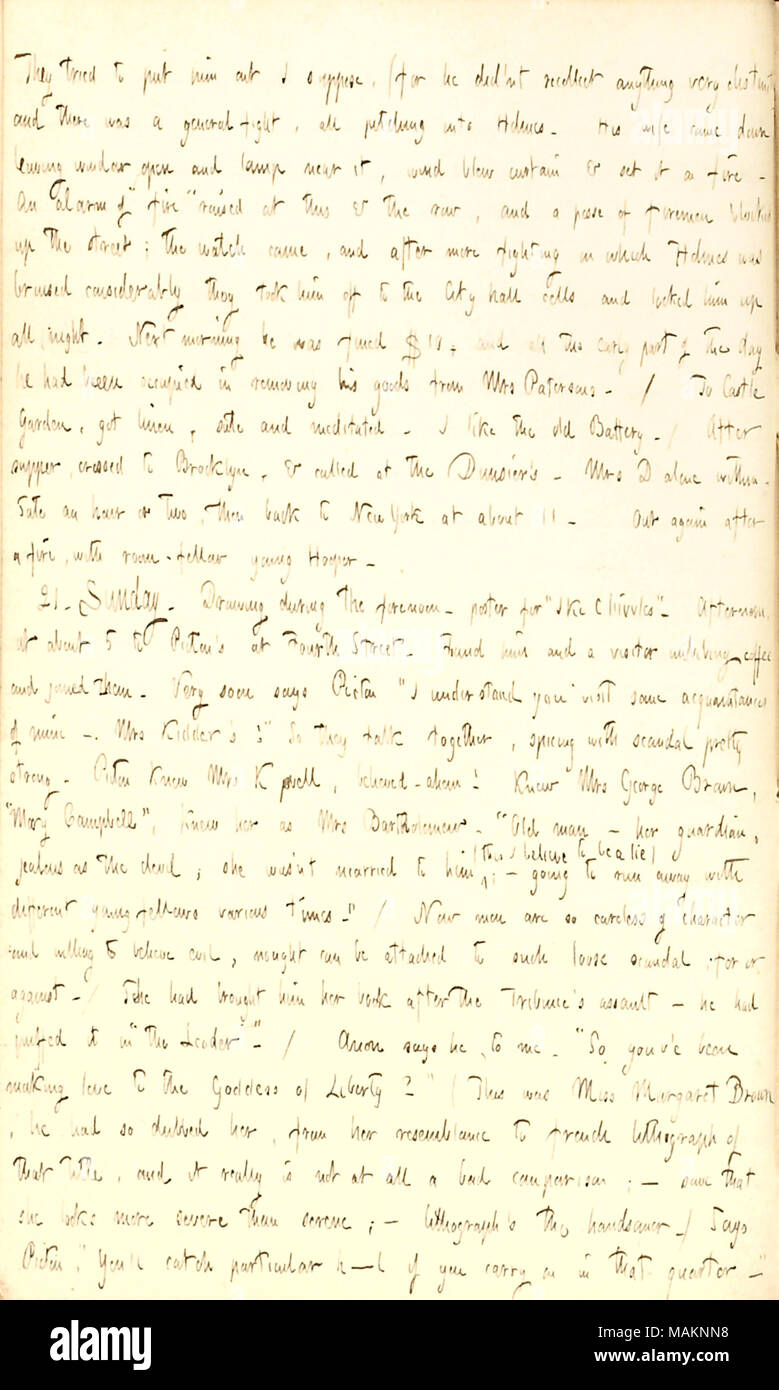 They tried to put him out I suppose, (for he didn't recollect anything very distinctly
and there was a general fight, all pitching into Holmes. His wife came down
leaving window open and lamp near it, wind blew curtain & set it a fire -
An alarm of "fire" raised at this & the row, and a posse of firemen blocked
up the street; the watch came, and after more fighting in which Holmes was
bruised considerably they took him off to the City hall cells and locked him up
all night. Next morning he was fined $10, and all this early part of the day
he had been occupied in removing his goods from Mrs Patersons. / To Castle
Garden, got linen, sate and meditated. I like the old Battery. / After
supper, crossed to Brooklyn, & called at the Dunsier's. Mrs D alone within.
Sate an hour or two, then back to New York at about 11. Out again after
a fire, with room-fellow young Hooper.
21. Sunday. Drawing during the forenoon - poster for "Ike Chivvles". Afternoon,
at about 5 to Picton's at Fourth Street. Found him and a visitor imbibing coffee
and joined them. Very soon says Picton "I understand you visit some acquaintances
of mine -. Mrs Kidder's!" So they talk together, spicing with scandal pretty
strong. Picton knew Mrs K well, believed - ahem! Knew Mrs George Brown,
"Mary Campbell", knew her as Mrs Bartholomew. "Old man - her guardian,
jealous as the devil; she wasn't married to him (this I believe to be a lie); - going to run away with
different young fellows various times." / Now men are so careless of character
and willing to believe evil, nought can be attached to such loose scandal, for or
against. / She had brought him her book after the Tribune's assault - he had
puffed it in "the Leader". / Anon says he, to me. "So, you've been
making love to the Goddess of Liberty?" (This was Miss Margaret Brown
, he had so dubbed her, from her resemblance to french lithograph of
that title, and it really is not at all a bad comparison; - save that
she looks more severe than serene; - lithograph's the handsomer.) Says
Picton, "You'll catch particular h--l if you carry on in that quarter -"
alamy
Image ID: MAKNN8
www.alamy.com